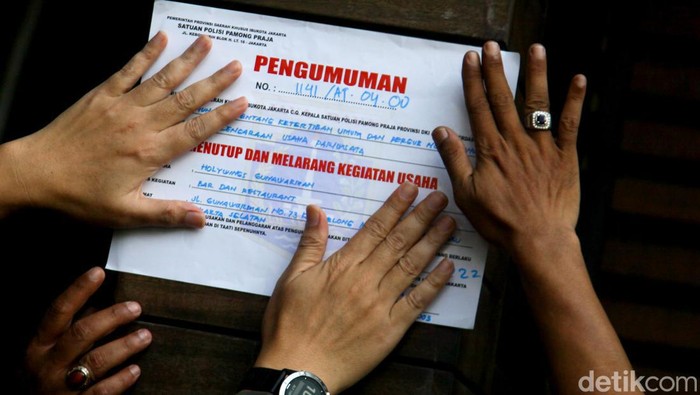 PEMERINTAH PROVINSI DAERAH KHUSUS IBUKOTA JAKARTA
SATUAN POLISI PAMONG PRAJA
JL. KEBON SIRIH BLOK H. LT 18 - JAKARTA
PENGUMUMAN
NO. : 1141/AT.04.00
BUKOTA JAKARTA C.Q. KEPALA SATUAN POLISI PAMONG PRAJA PROVINSI DKI
TENTANG KETERTIBAN UMUM DAN PERGUB
USAHA PARIWISATA
MENUTUP DAN MELARANG KEGIATAN USAHA
HOLYWINGS GUNAWARMAN
KEGIATAN
BAR DAN RESTAURANT
MAT
JL GUNAWARMAN NO. 73
JAKARTA SELATAN
USAKAN DAN PELANGGARAN ATAS PENGUMUMAN
BERLAKU
DI TAATI SEPENUHNYA.
22
detikcom